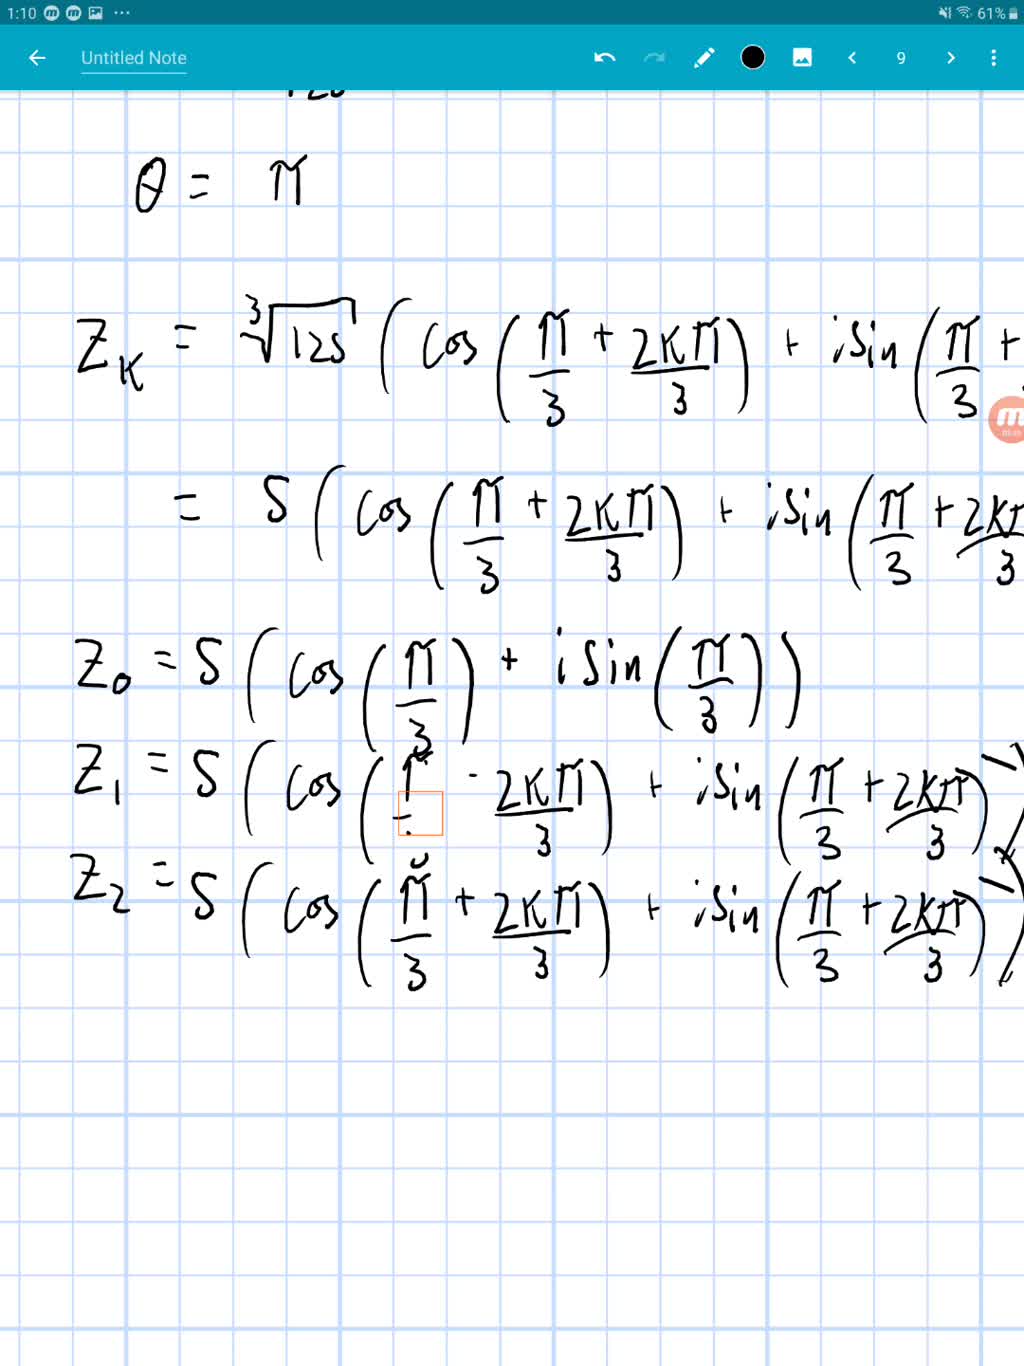 1:10 61%
Untitled Note 9
θ = π
Z_K = ∛125 (cos(π/3 + 2Kπ/3) + i sin(π/3 +
= 5 (cos(π/3 + 2Kπ/3) + i sin(π/3 + 2Kπ/3
Z_0 = 5 (cos(π/3) + i sin(π/3))
Z_1 = 5 (cos(π - 2Kπ/3) + i sin(π/3 + 2Kπ/3))
Z_2 = 5 (cos(π/3 + 2Kπ/3) + i sin(π/3 + 2Kπ/3))